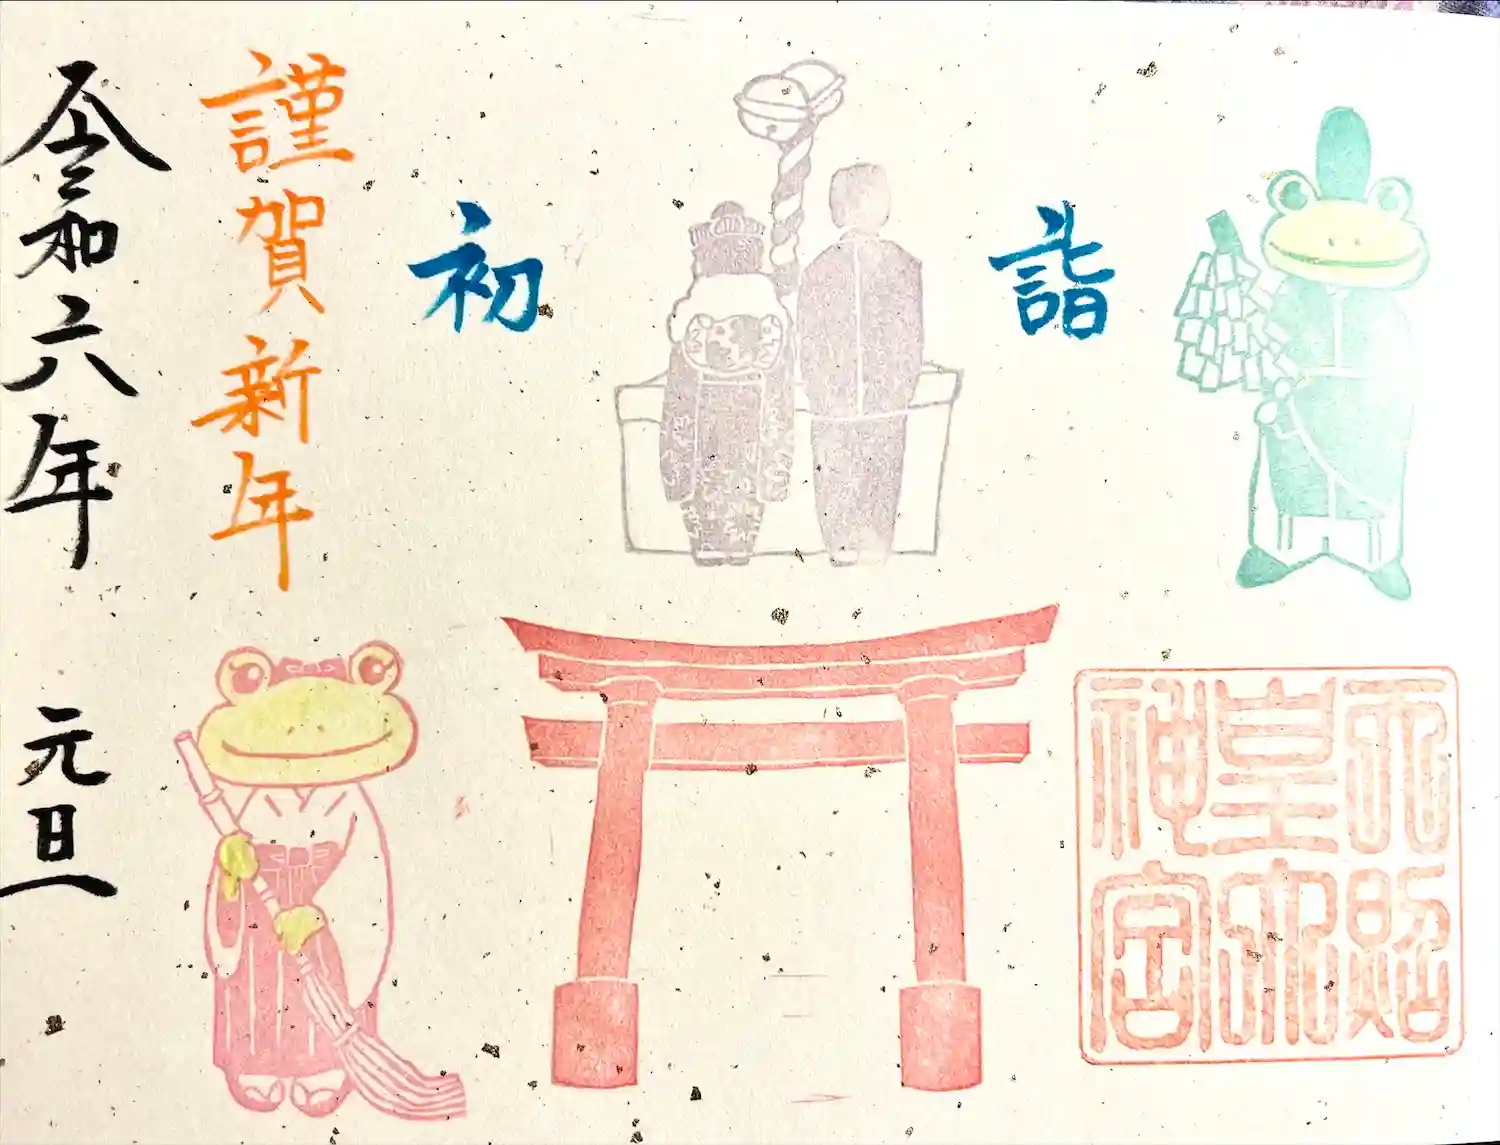 初詣
天照
皇大
神宮
謹賀新年
令和六年 元旦